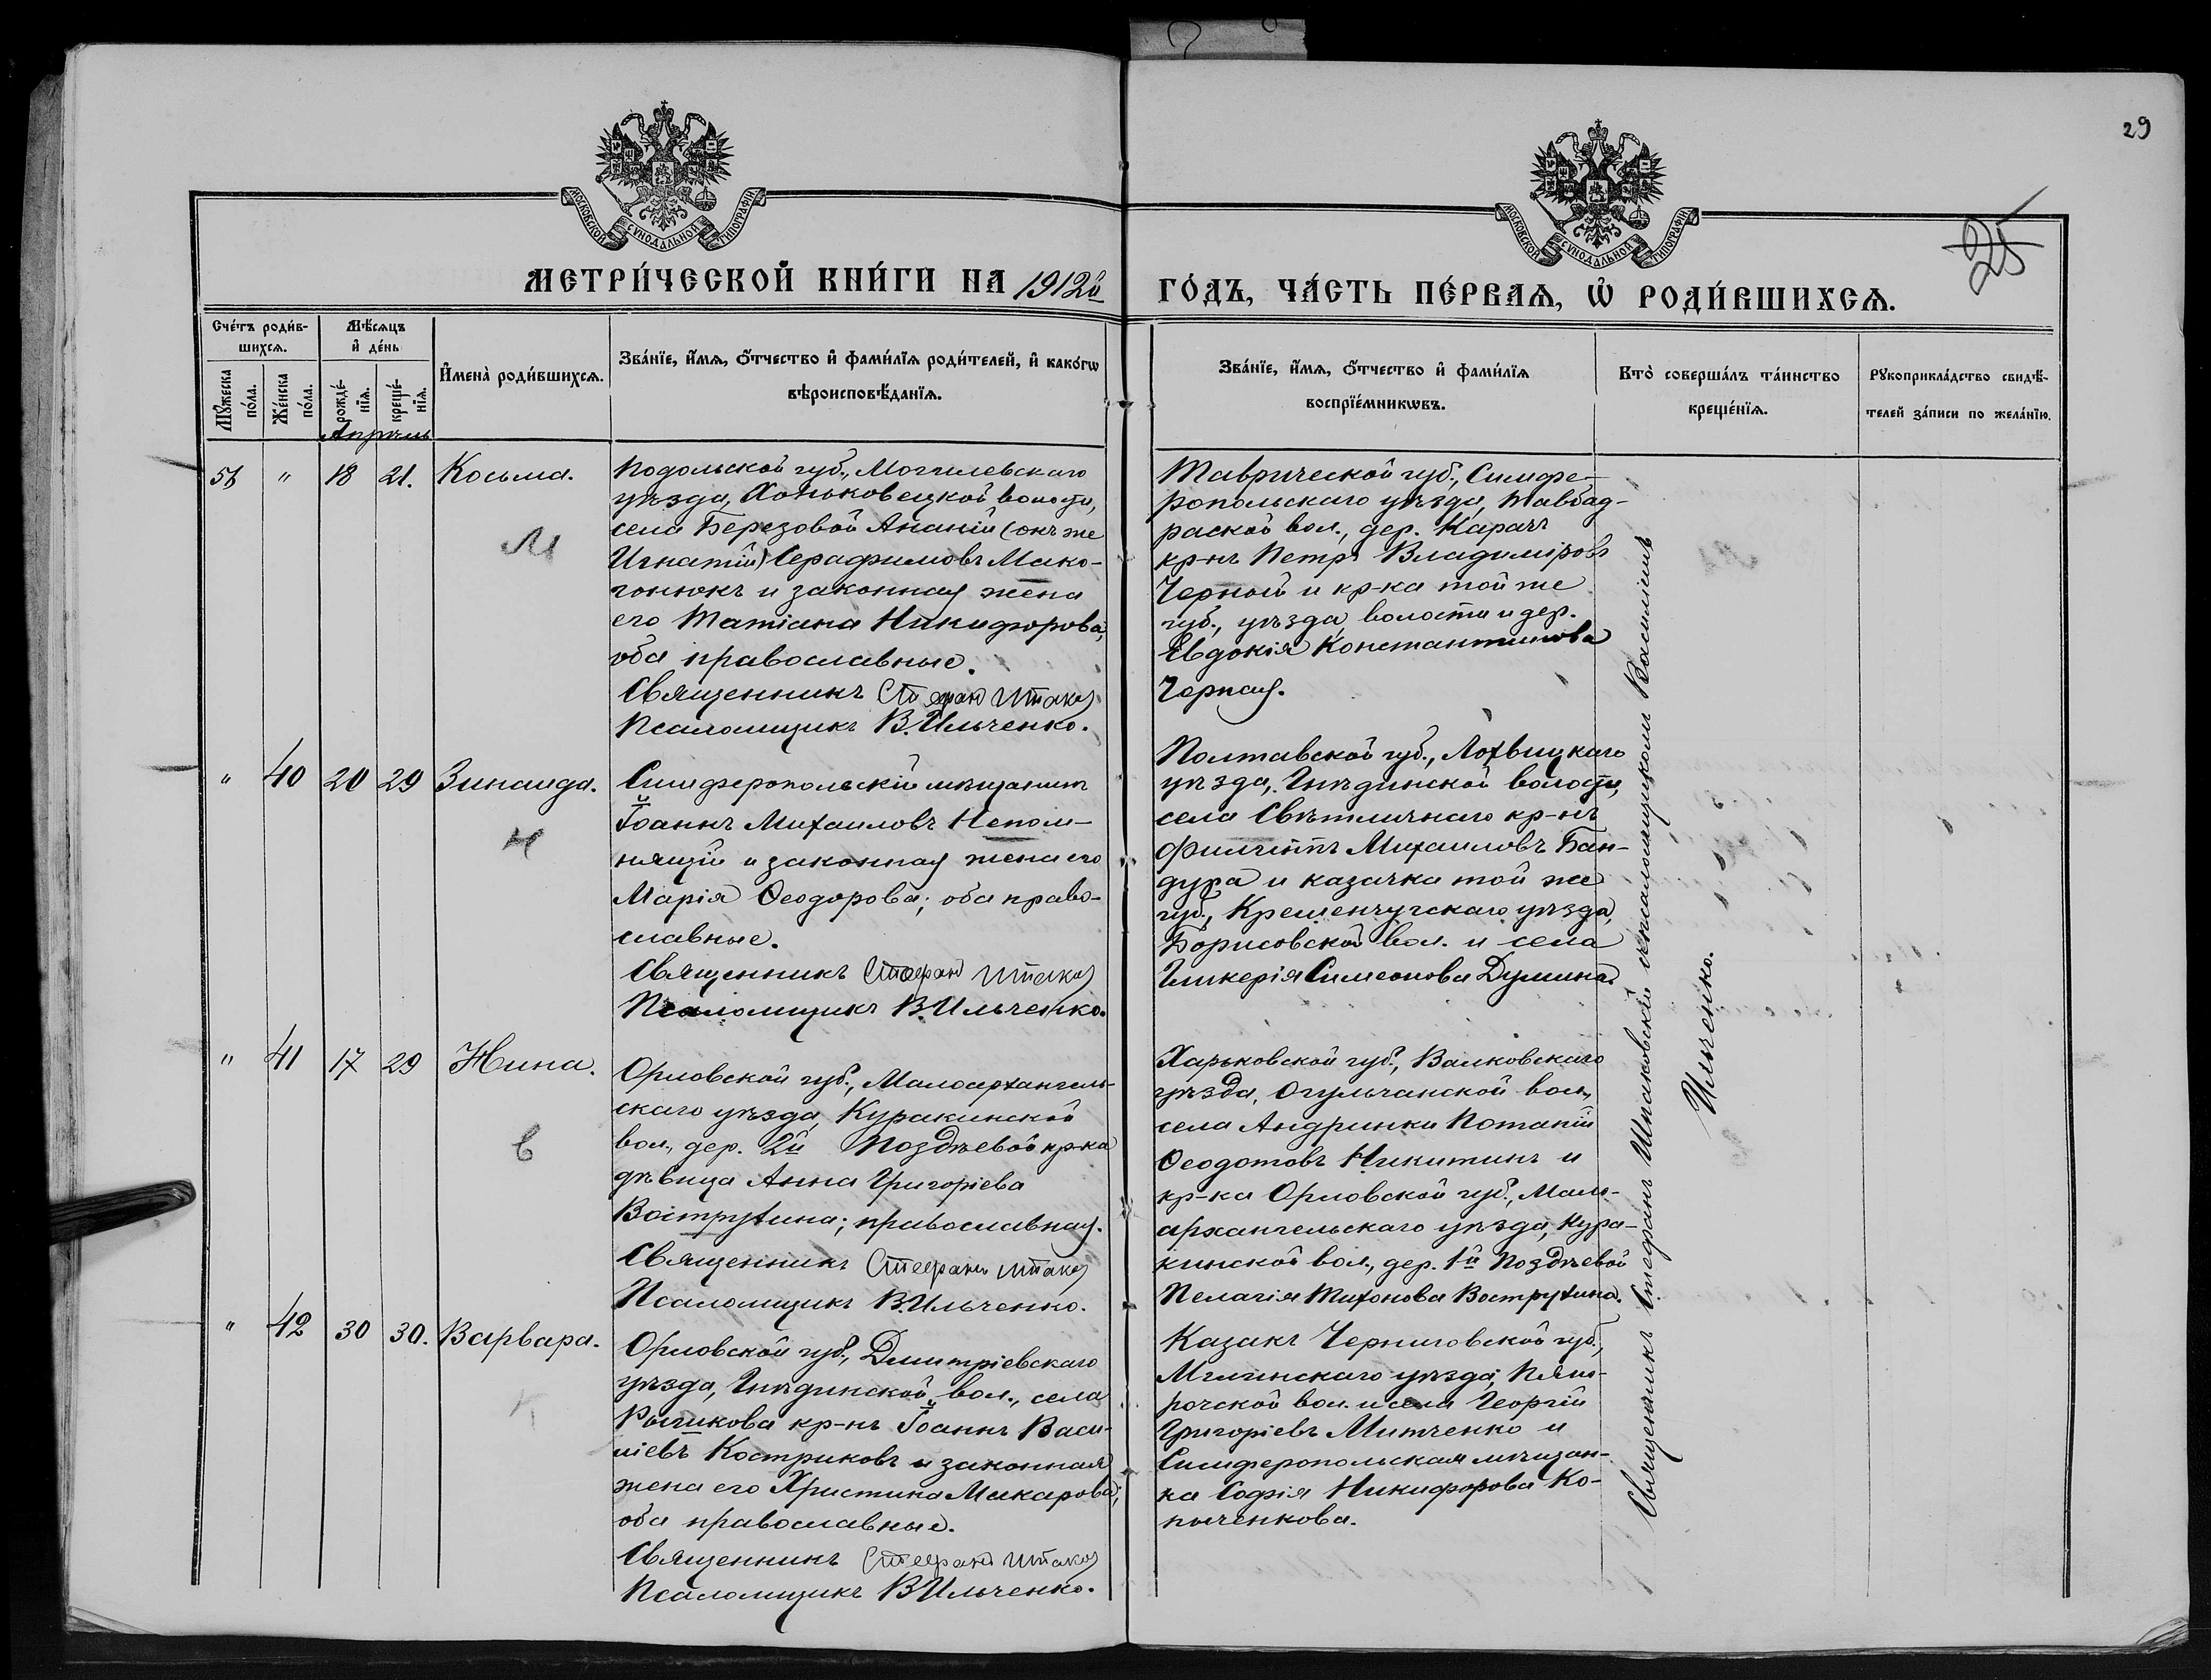 29
25
МОСКОВСКОЙ СѴНОДАЛЬНОЙ ТИПОГРАФІИ
МОСКОВСКОЙ СѴНОДАЛЬНОЙ ТИПОГРАФІИ
МЕТРИ́ЧЕСКОЙ КНИ́ГИ НА 1912й
ГО́ДЪ, ЧА́СТЬ ПЕ́РВАѦ, Ѡ҆ РОДИ́ВШИХСѦ.
Сче́тъ роди́в-
шихсѧ.
Мꙋ́жеска по́ла.
Же́нска по́ла.
Мѣ́сѧцъ
и҆ де́нь
рожде́-
нїѧ.
креще́-
нїѧ.
И҆мена̀ роди́вшихсѧ.
Зва́нїе, и҆́мѧ, ѻ҆́тчество и҆ фами́лїѧ роди́телей, и҆ како́гѡ
вѣроисповѣ́данїѧ.
Зва́нїе, и҆́мѧ, ѻ҆́тчество и҆ фами́лїѧ
воспрїе́мникѡвъ.
Кто̀ соверша́лъ та́инство
креще́нїѧ.
Рꙋкоприкла́дство свидѣ́-
телей за́писи по жела́нїю.
Апрѣль
" 18 21. Косьма.
М
Подольской губ., Могилевскаго
уѣзда, Хоньковецкой волости,
села Березовой Ананій (онъ же
Игнатій) Серафимовъ Мако-
гонюкъ и законная жена
его Татіана Никифорова,
оба православные.
Священникъ Стефанъ
Псаломщикъ В. Ильченко.
Таврической губ., Симфе-
ропольскаго уѣзда,
вол., дер. Карачъ
кр-нъ Петръ Владиміровъ
Черной и кр-ка той же
губ., уѣзда, волости и дер.
Евдокія Константинова
Черная.
" 40 20 29 Зинаида.
Н
Симферопольскій мѣщанинъ
Іоаннъ Михаиловъ Непом-
нящій и законная жена его
Марія Ѳеодорова; оба право-
славные.
Священникъ Стефанъ
Псаломщикъ В. Ильченко.
Полтавской губ., Лохвицкаго
уѣзда, Гнѣдинской волости,
села Свѣтличнаго кр-нъ
Филиппъ Михаиловъ Бан-
дура и казачка той же
губ., Кременчугскаго уѣзда,
Борисовской вол. и села
Гликерія Симеонова Думина.
" 41 17 29 Нина.
В
Орловской губ., Малоархангель-
скаго уѣзда, Куракинской
вол., дер. 2й Поздѣевой кр-ка
дѣвица Анна Григоріева
Вострухина; православная.
Священникъ Стефанъ
Псаломщикъ В. Ильченко.
Харьковской губ., Валковскаго
уѣзда, Огульчанской вол.,
села Андринки Потапій
Ѳеодотовъ Никитинъ и
кр-ка Орловской губ., Мало-
архангельскаго уѣзда, Кура-
кинской вол., дер. 1й Поздѣевой
Пелагія Тихонова Вострухина.
" 42 30 30. Варвара.
К
Орловской губ., Дмитріевскаго
уѣзда, Гнѣдинской вол., села
кр-нъ Іоаннъ Васи-
ліевъ Костриковъ и законная
жена его Христина Макарова;
оба православные.
Священникъ Стефанъ
Псаломщикъ В. Ильченко.
Казакъ Черниговской губ.,
Мглинскаго уѣзда,
вол. и села Георгій
Григоріевъ Митченко и
Симферопольская мѣщан-
ка Софія Никифорова Ко-
пыченкова.
Священникъ Стефанъ Шпаковскій съ псаломщикомъ Василіемъ
Ильченко.